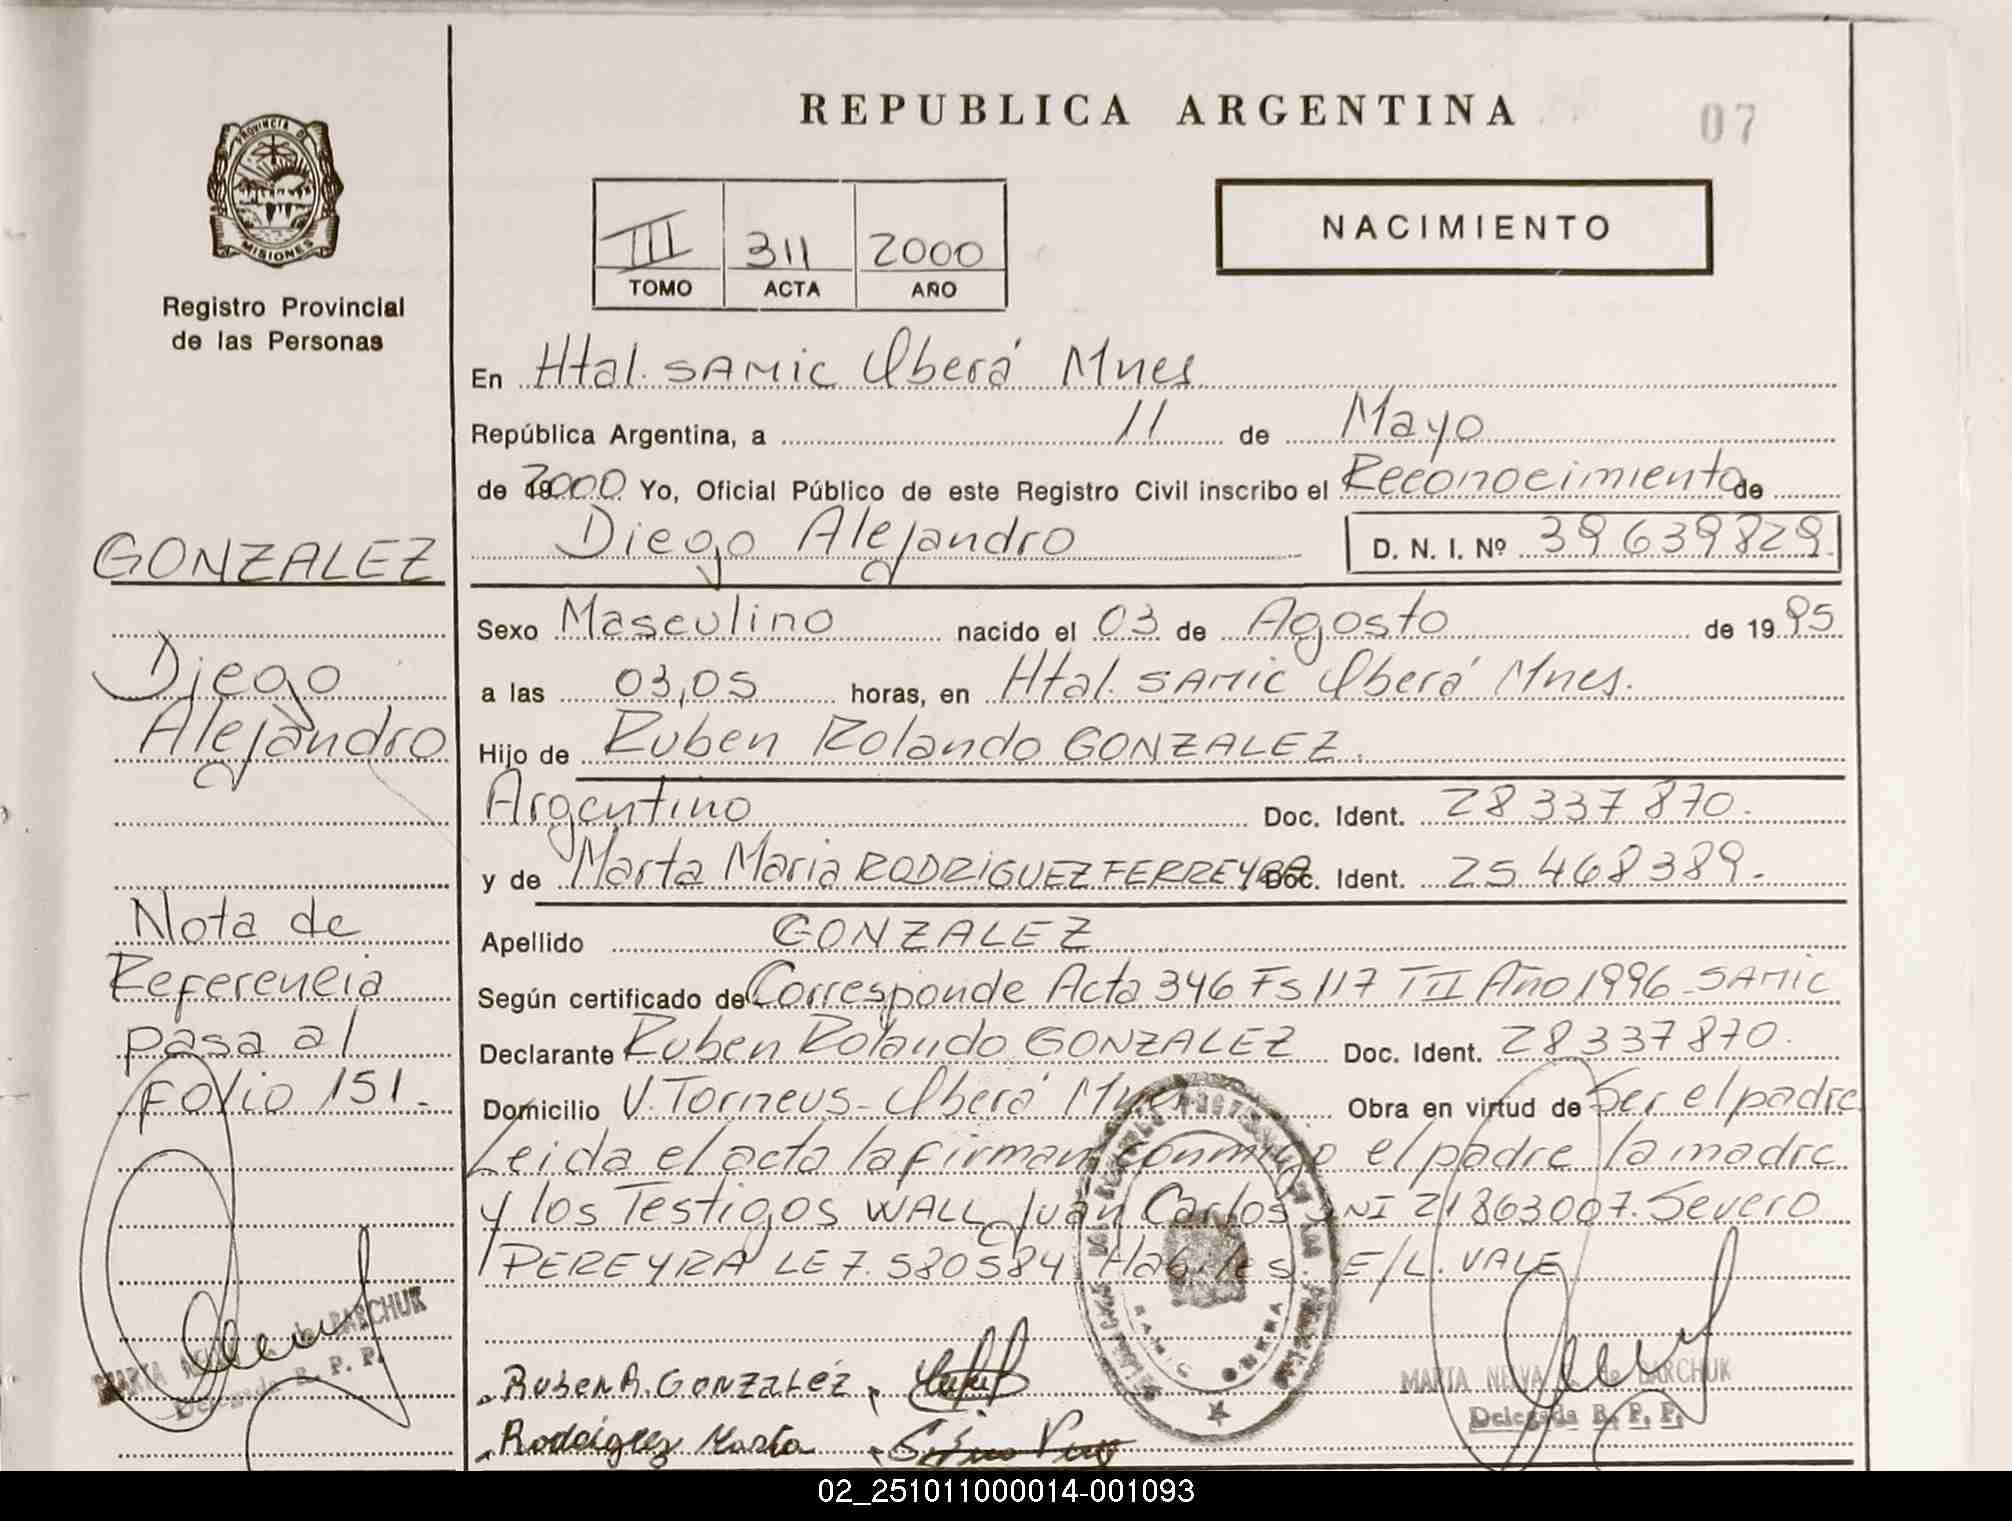 REPUBLICA ARGENTINA
07
PROVINCIA D
MISIONES
Registro Provincial
de las Personas
III 311 2000
TOMO ACTA AÑO
NACIMIENTO
En Htal. SAMIC Oberá Mnes
República Argentina, a 11 de Mayo
de 2000 Yo, Oficial Público de este Registro Civil inscribo el Reconocimiento de
Diego Alejandro D. N. I. Nº 39639829
Sexo Masculino nacido el 03 de Agosto de 1995
a las 03,05 horas, en Htal. SAMIC Oberá Mnes.
Hijo de Ruben Rolando GONZALEZ.
Argentino Doc. Ident. 28 337 870.
y de Marta Maria RODRIGUEZ FERREYRA Doc. Ident. 25 468 389.
Apellido GONZALEZ
Según certificado de Corresponde Acta 346 Fs 117 TII Año 1996 SAMIC
Declarante Ruben Rolando GONZALEZ Doc. Ident. 28 337 870.
Domicilio V. Torneus - Oberá Mnes Obra en virtud de Ser el padre
Leida el acta la firman conmigo el padre la madre
y los Testigos WALL Juan Carlos DNI 21863007. Severo
PEREYRA LE 7.580584 Habiles. E/L. VALE
GONZALEZ
Diego
Alejandro
Nota de
Referencia
pasa al
folio 151.
MARTA NE de BARCHUK
Delegada R. P. P.
Ruben R. GONZALEZ
Rodriguez Marta
SAMIC OBERA
MARTA NELVA de BARCHUK
Delegada R. P. P.
02_251011000014-001093